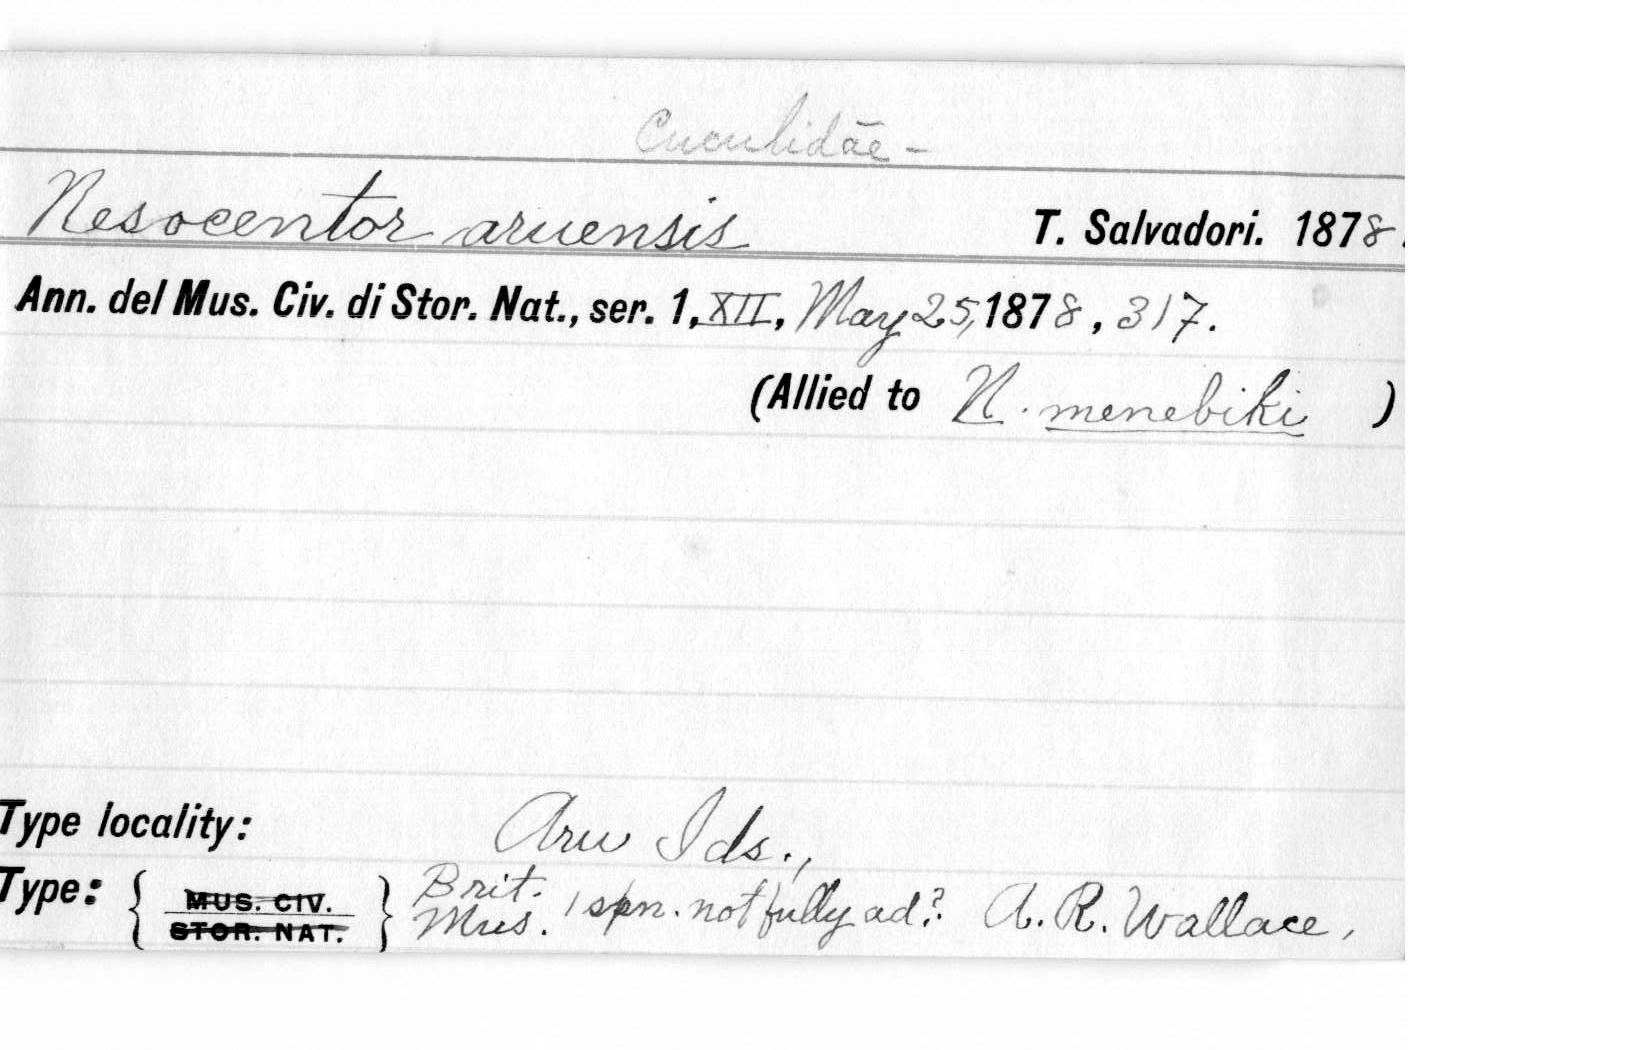 Cuculidae -
Nesocentor aruensis T. Salvadori. 1878.
Ann. del Mus. Civ. di Stor. Nat., ser. 1, XII, May 25, 1878, 317.
(Allied to N. menebiki )
Type locality: Aru Ids.,
Type: { MUS. CIV. STOR. NAT. } Brit. Mus. 1 spn. not fully ad? A. R. Wallace,